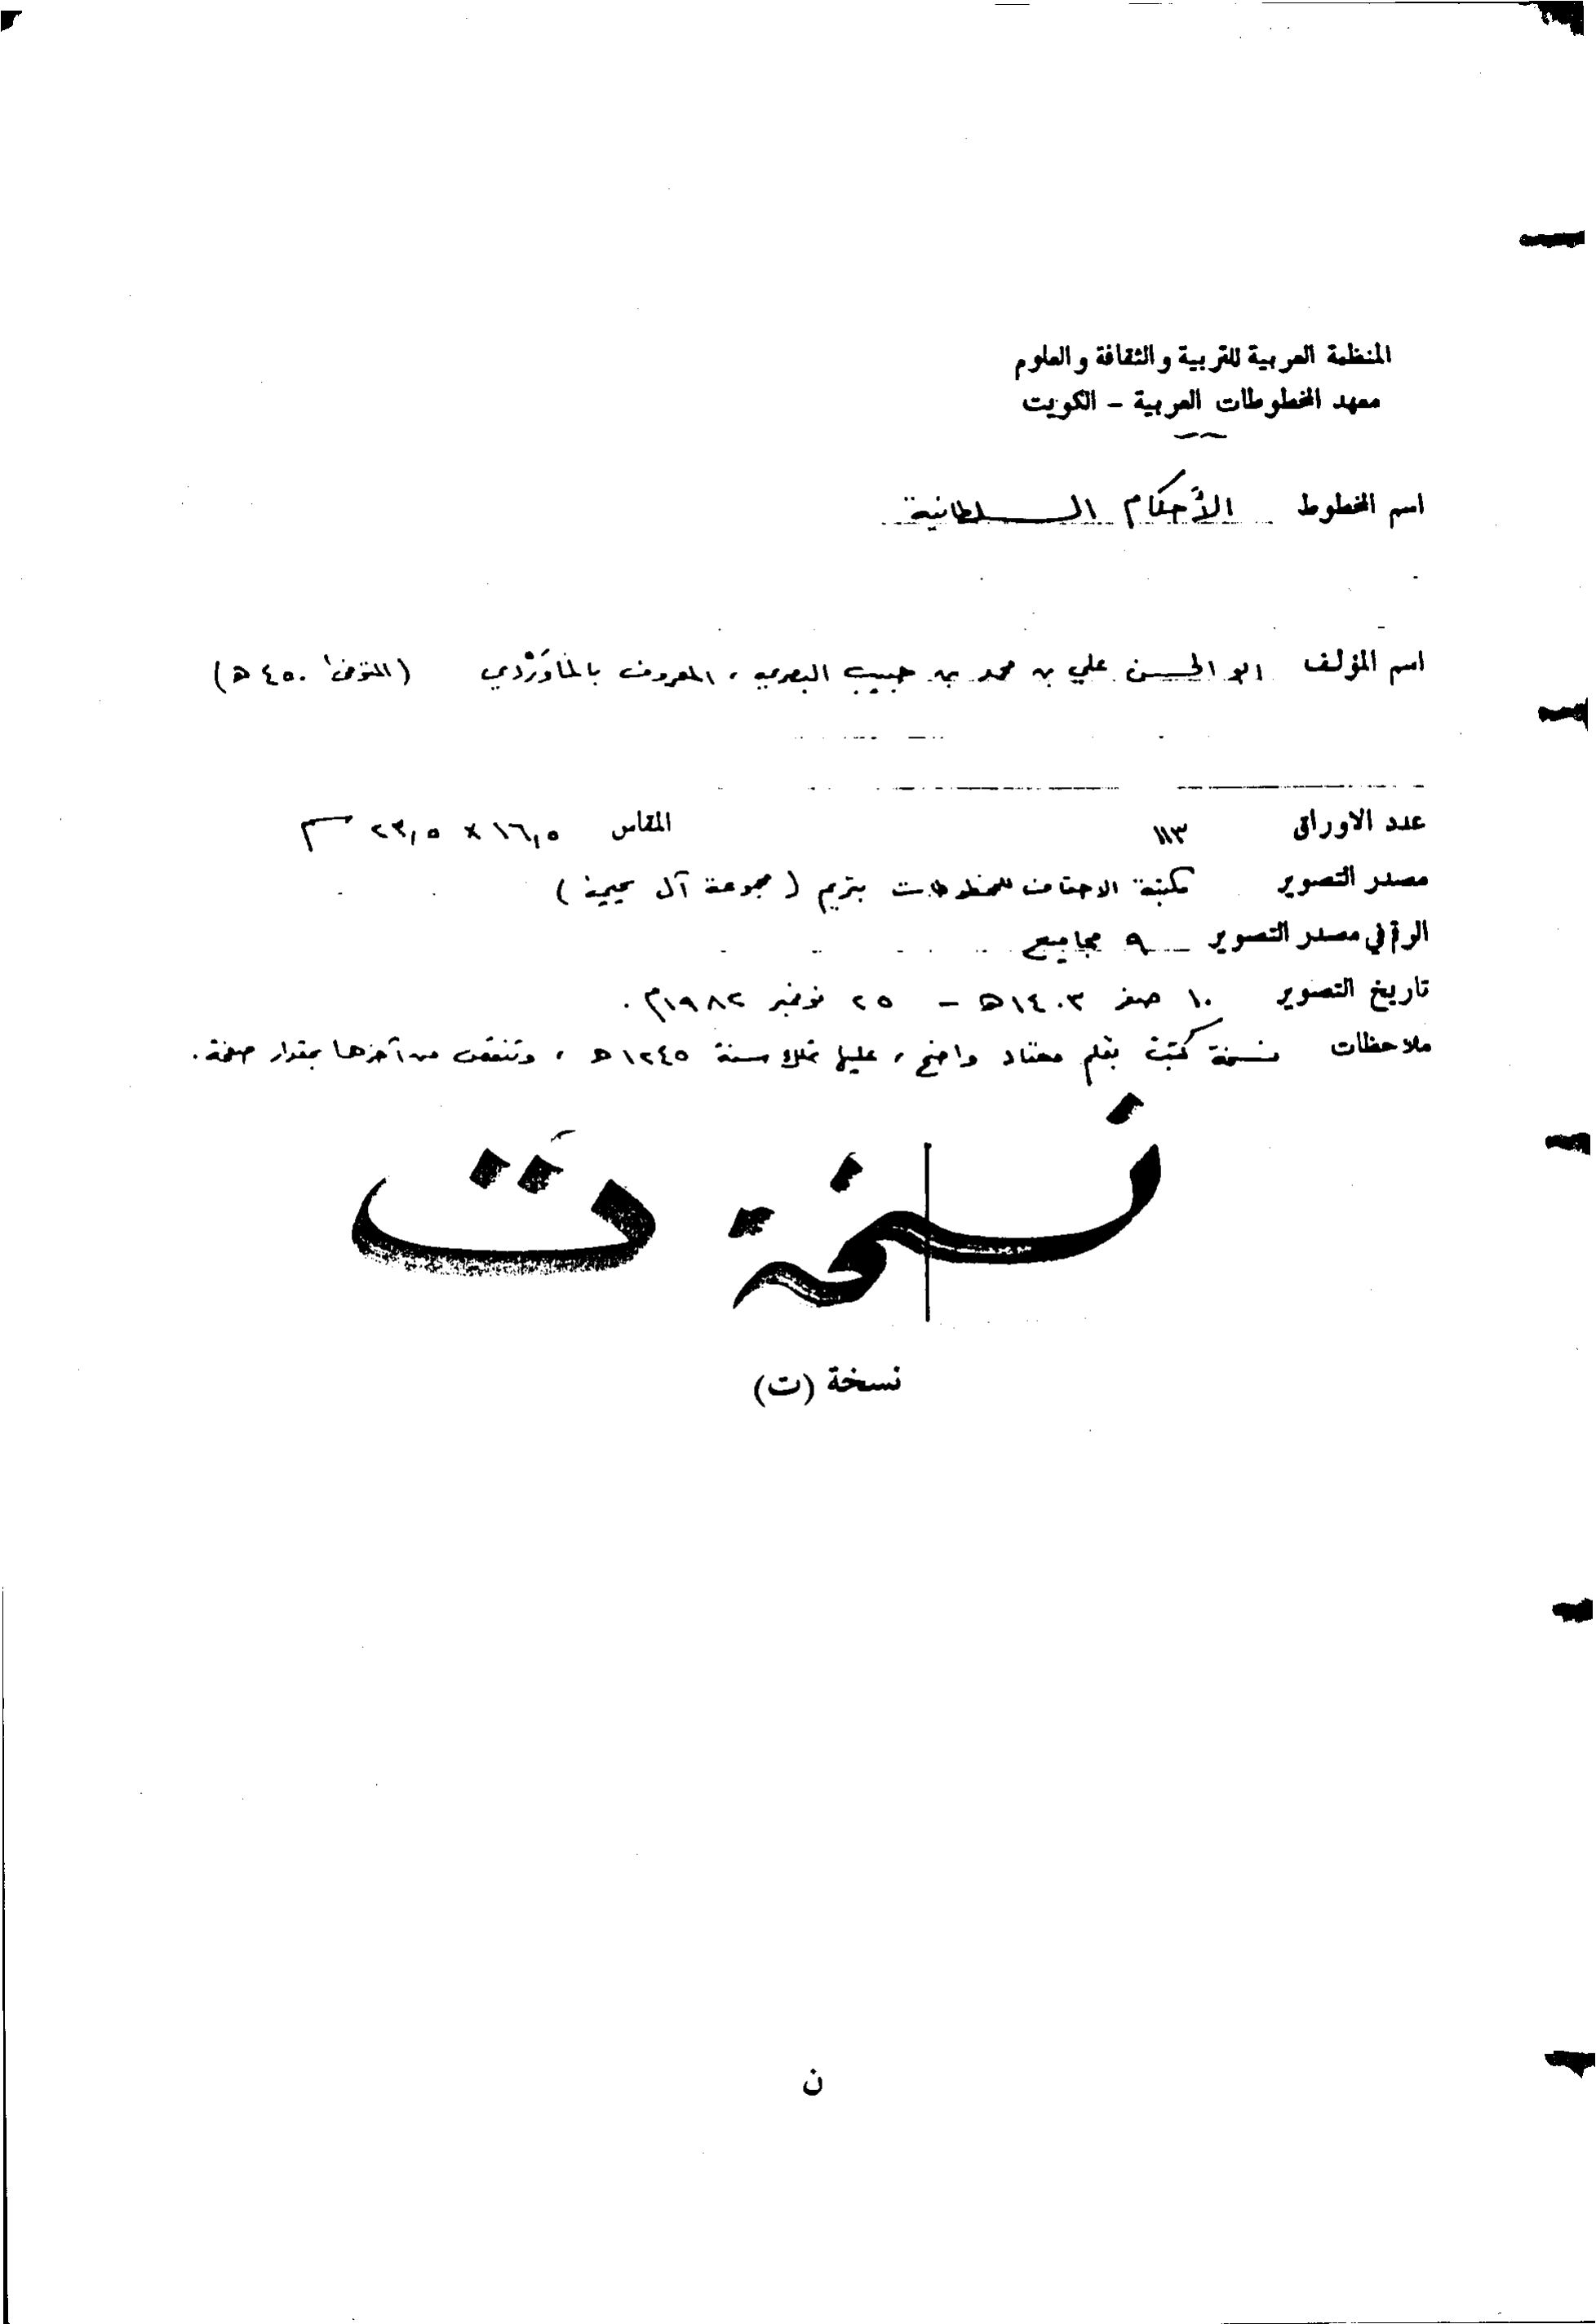 المنظمة العربية للتربية والثقافة والعلوم
معهد المخطوطات العربية - الكويت
اسم المخطوط الأحكام السلطانية
اسم المؤلف ابو الحسن علي بن محمد بن حبيب البصري، المعروف بالماوَرْدي (المتوفى ٤٥٠ هـ)
عدد الاوراق ١١٣ المقاس ١٦,٥ × ٢٣,٥ سم
مصدر التصوير مكتبة الاحقاف للمخطوطات بتريم (مجموعة آل يحيى)
الرقم في مصدر التصوير ٩ مجاميع
تاريخ التصوير ١٠ صفر ١٤٠٣هـ - ٢٥ نوفمبر ١٩٨٢م.
ملاحظات نسخة كتبت بقلم معتاد واضح، عليها تملك سنة ١٢٤٥ هـ، وتنقص من آخرها بمقدار صفحة.
نسخة ت
نسخة (ت)
ن